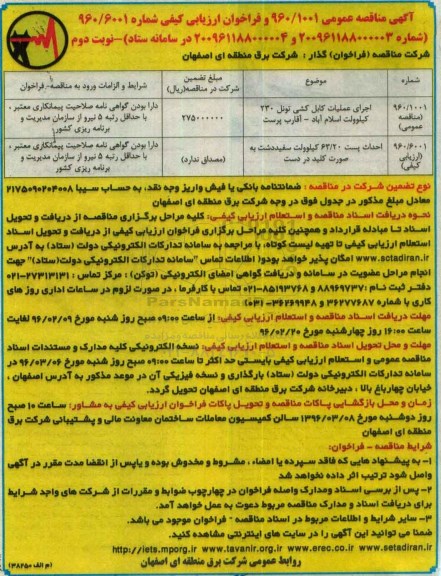 آگهی مناقصه عمومی ۹۶۰/۱۰۰۱ و فراخوان ارزیابی کیفی شماره ۹۶۰/۶۰۰۱
(شماره ۲۰۰۹۶۱۱۸۸۰۰۰۰۰۳ و ۲۰۰۹۶۱۱۸۸۰۰۰۰۰۴ در سامانه ستاد) –نوبت دوم
شرکت مناقصه (فراخوان) گذار : شرکت برق منطقه ای اصفهان
شماره
موضوع
مبلغ تضمین شرکت در مناقصه(ریال)
شرایط و الزامات ورود به مناقصه-فراخوان
۹۶۰/۱۰۰۱ (مناقصه عمومی)
اجرای عملیات کابل کشی تونل ۲۳۰ کیلوولت اسلام آباد - آقارب پرست
۲۷۵۰۰۰۰۰۰
دارا بودن گواهی نامه صلاحیت پیمانکاری معتبر ، با حداقل رتبه ۵ نیرو از سازمان مدیریت و برنامه ریزی کشور
۹۶۰/۶۰۰۱ (ارزیابی کیفی)
احداث پست ۶۳/۲۰ کیلوولت سفیددشت به صورت کلید در دست
(مصداق ندارد)
دارا بودن گواهی نامه صلاحیت پیمانکاری معتبر ، با حداقل رتبه ۵ نیرو از سازمان مدیریت و برنامه ریزی کشور
نوع تضمین شرکت در مناقصه : ضمانتنامه بانکی یا فیش واریز وجه نقد، به حساب سیبا ۲۱۷۵۰۹۰۲۰۴۰۰۸
معادل مبلغ مذکور در جدول فوق در وجه شرکت برق منطقه ای اصفهان
نحوه دریافت اسناد مناقصه و استعلام ارزیابی کیفی: کلیه مراحل برگزاری مناقصه از دریافت و تحویل
اسناد تا مبادله قرارداد و همچنین کلیه مراحل برگزاری فراخوان ارزیابی کیفی از دریافت و تحویل اسناد
استعلام ارزیابی کیفی تا تهیه لیست کوتاه، با مراجعه به سامانه تدارکات الکترونیکی دولت (ستاد) به آدرس
www.setadiran.ir امکان پذیر خواهد بود( اطلاعات تماس "سامانه تدارکات الکترونیکی دولت(ستاد)" جهت
انجام مراحل عضویت در سامانه و دریافت گواهی امضای الکترونیکی (توکن) : مرکز تماس : ۲۷۳۱۳۱۳۱-۰۲۱
دفتر ثبت نام : ۸۸۹۶۹۷۳۷ و ۸۵۱۹۳۷۶۸-۰۲۱ تماس با کارفرما ، در صورت لزوم در ساعات اداری روز های
کاری با شماره ۳۶۲۷۷۶۸۷ و ۳۶۲۶۹۹۴۸-۰۳۱
مهلت دریافت اسناد مناقصه و استعلام ارزیابی کیفی: از ساعت ۰۹:۰۰ صبح روز شنبه مورخ ۹۶/۰۲/۰۹ لغایت
ساعت ۱۶:۰۰ روز چهارشنبه مورخ ۹۶/۰۲/۲۰
مهلت و محل تحویل اسناد مناقصه و استعلام ارزیابی کیفی: نسخه الکترونیکی کلیه مدارک و مستندات اسناد
مناقصه عمومی و استعلام ارزیابی کیفی بایستی حد اکثر تا ساعت ۰۹:۰۰ صبح روز شنبه مورخ ۹۶/۰۳/۰۶ در
سامانه تدارکات الکترونیکی دولت (ستاد) بارگذاری و نسخه فیزیکی آن در موعد مذکور به آدرس اصفهان ،
خیابان چهارباغ بالا ، دبیرخانه شرکت برق منطقه ای اصفهان تحویل گردد.
زمان و محل بازگشایی پاکات مناقصه و تحویل پاکات فراخوان ارزیابی کیفی به مشاور: ساعت ۱۰ صبح
روز دوشنبه مورخ ۱۳۹۶/۰۳/۰۸ سالن کمیسیون معاملات ساختمان معاونت مالی و پشتیبانی شرکت برق
منطقه ای اصفهان
شرایط مناقصه - فراخوان:
۱- به پیشنهاد هایی که فاقد سپرده یا امضاء ، مشروط و مخدوش بوده و یاپس از انقضا مدت مقرر در آگهی
واصل شود ترتیب اثر داده نخواهد شد
۲- پس از بررسی اسناد ومدارک واصله فراخوان در چهارچوب ضوابط و مقررات از شرکت های واجد شرایط
برای دریافت اسناد و مدارک مناقصه مربوط دعوت به عمل خواهد آمد.
۳- سایر شرایط و اطلاعات مربوط در اسناد مناقصه - فراخوان موجود می باشد.
ضمنا می توانید این آگهی را در سایت های اینترنتی مشاهده کنید.
http://iets.mporg.ir www.tavanir.org.ir www.erec.co.ir www.setadiran.ir
روابط عمومی شرکت برق منطقه ای اصفهان
(م الف ۳۸۲۵۰)